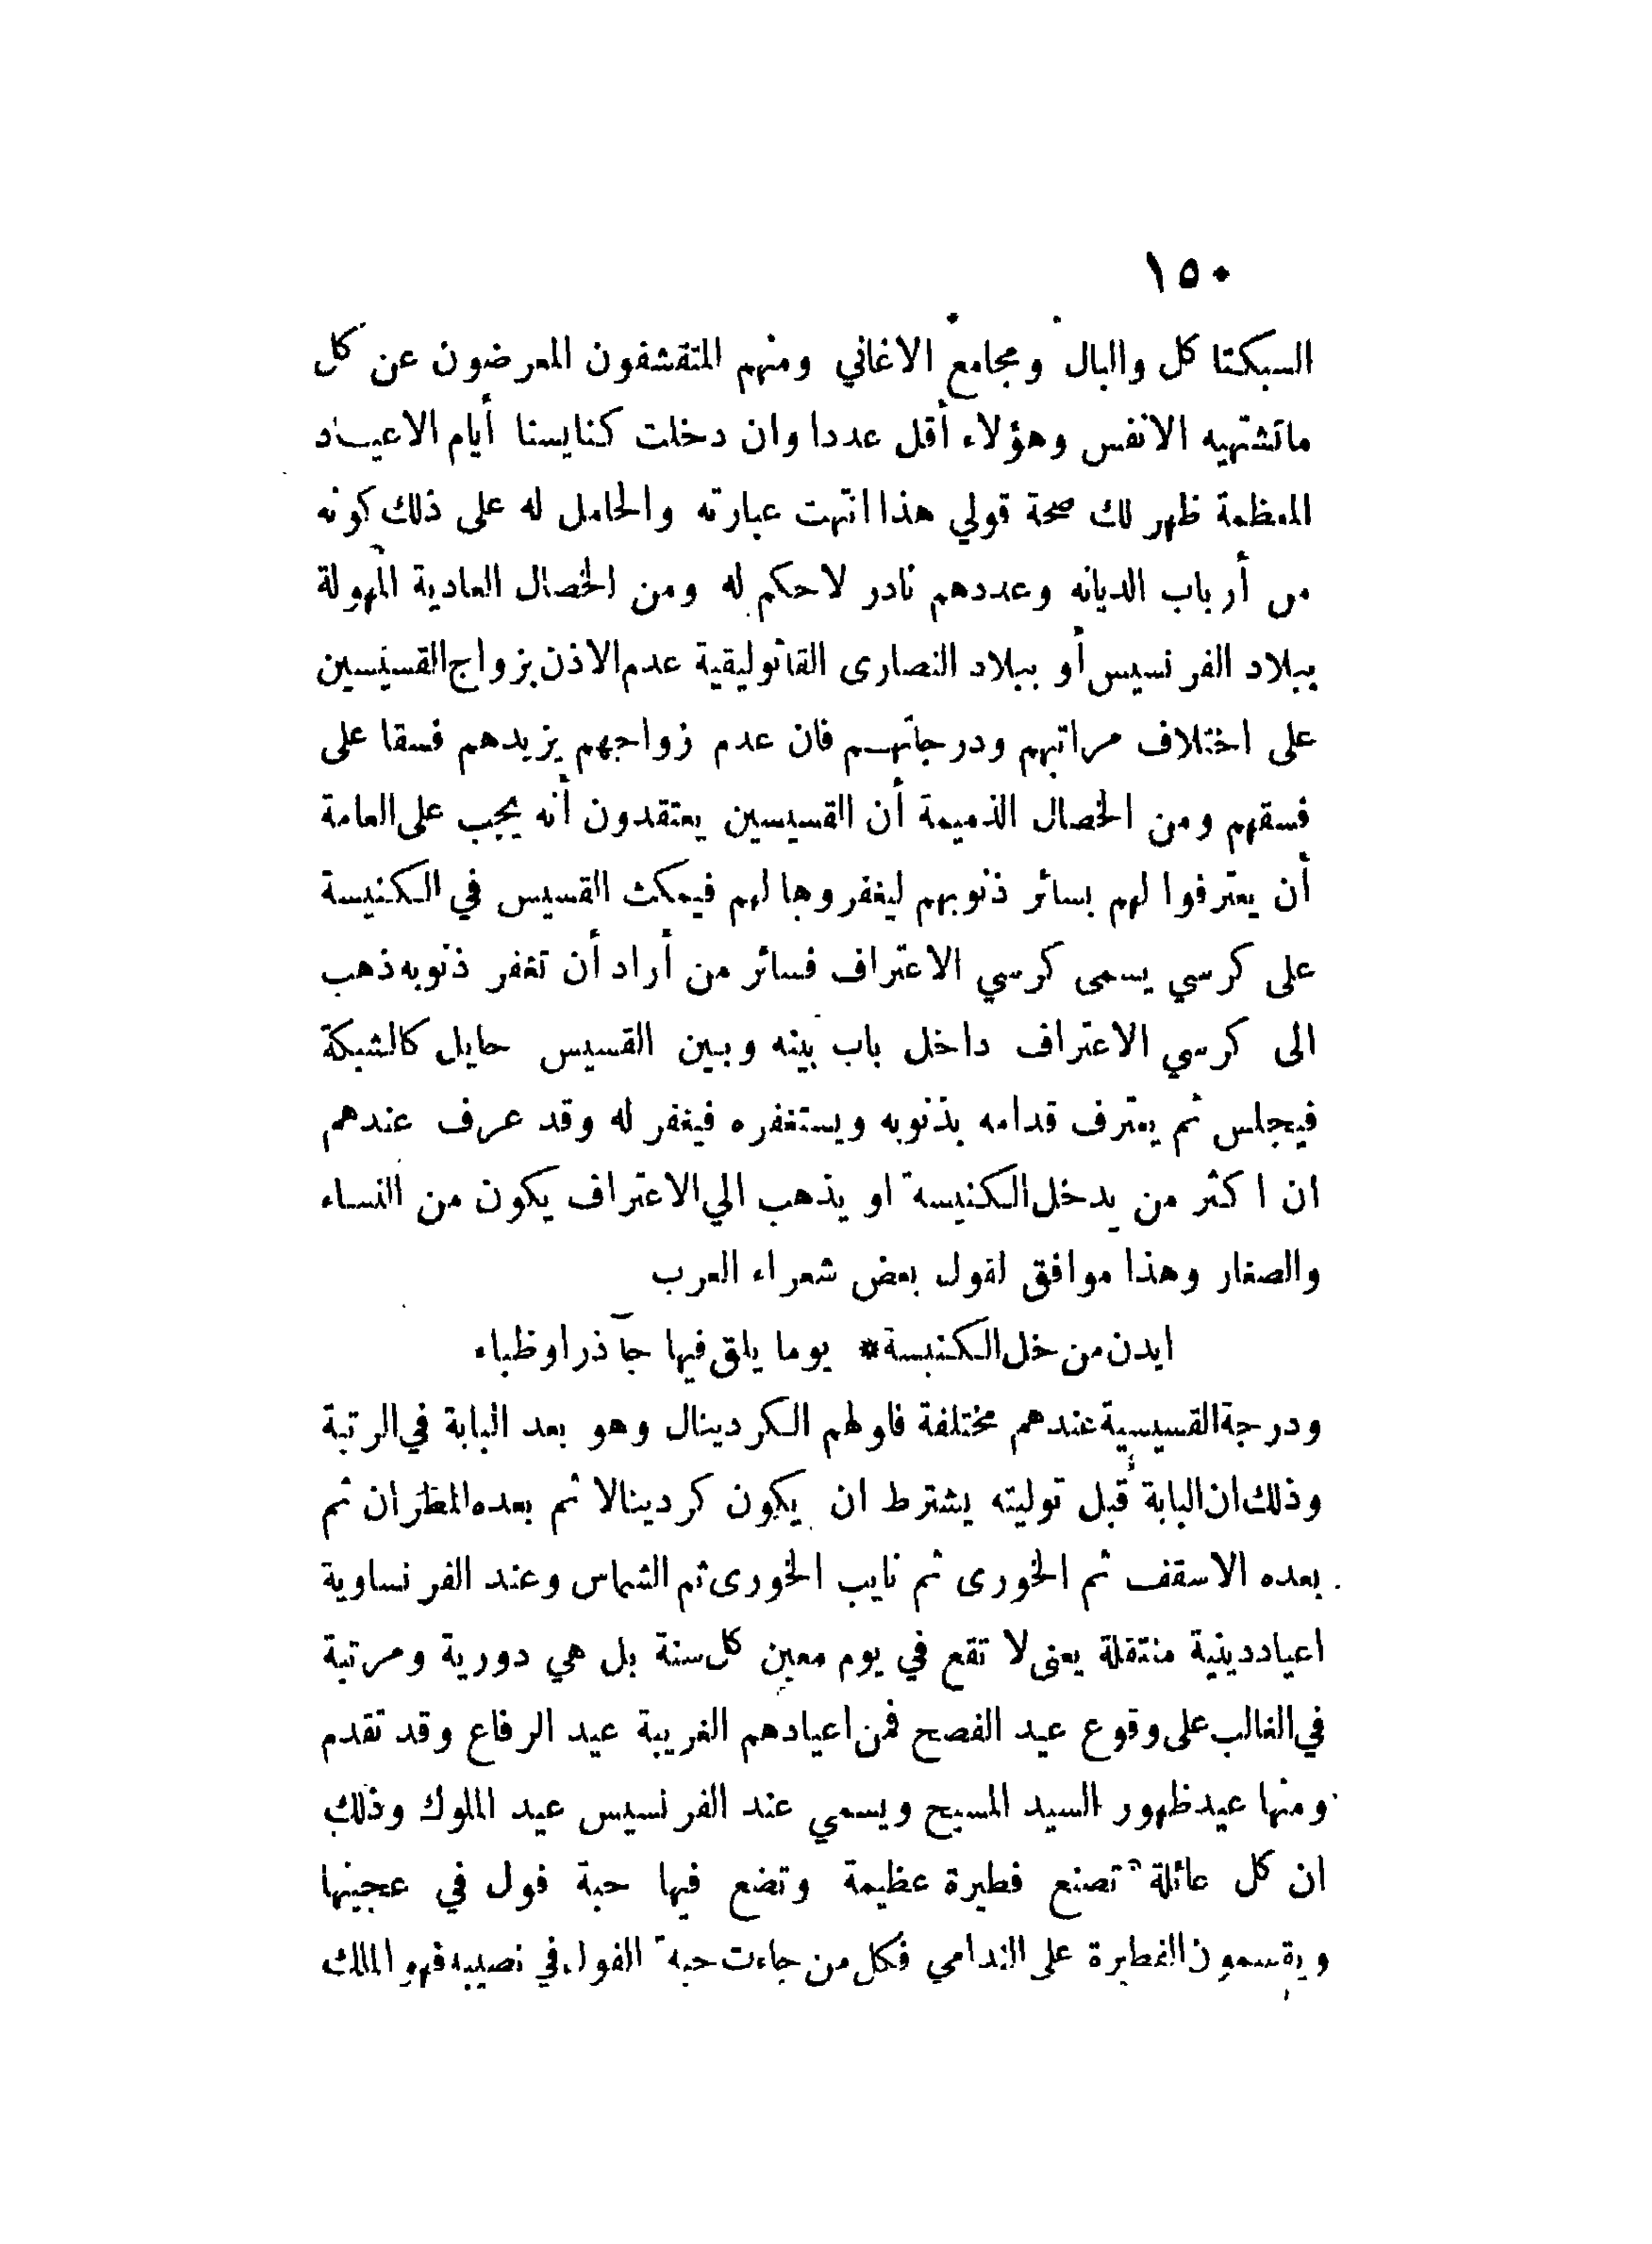 ١٥٠
السبكتا كل والبال ومجامع الاغاني ومنهم المتقشفون المعرضون عن كل
ماتشتهيه الانفس وهؤلاء أقل عددا وان دخلت كنايسنا أيام الاعياد
المعظمة ظهر لك صحة قولي هذا انتهت عبارته والحامل له على ذلك كونه
من أرباب الديانه وعددهم نادر لاحكم له ومن الخصال العادية المهولة
ببلاد الفرنسيس أو ببلاد النصارى القاثوليقية عدم الاذن بزواج القسيسين
على اختلاف مراتبهم ودرجاتهم فان عدم زواجهم يزيدهم فسقا على
فسقهم ومن الخصال الذميمة أن القسيسين يعتقدون أنه يجب على العامة
أن يعترفوا لهم بسائر ذنوبهم ليغفروها لهم فيمكث القسيس في الكنيسة
على كرسي يسمى كرسي الاعتراف فسائر من أراد أن تغفر ذنوبه ذهب
الى كرسي الاعتراف داخل باب بينه وبين القسيس حايل كالشبكة
فيجلس ثم يعترف قدامه بذنوبه ويستغفره فيغفر له وقد عرف عندهم
ان اكثر من يدخل الكنيسة او يذهب الي الاعتراف يكون من النساء
والصغار وهذا موافق لقول بعض شعراء العرب
ايدن من خل الكنيسة * يوما يلق فيها جآذرا وظباء
ودرجة القسيسية عندهم مختلفة فاولهم الكردينال وهو بعد البابة في الرتبة
وذلك ان البابة قبل توليته يشترط ان يكون كردينالا ثم بعده المطران ثم
بعده الاسقف ثم الخورى ثم نايب الخورى ثم الشماس وعند الفرنساوية
اعياد دينية منتقلة يعنى لا تقع في يوم معين كل سنة بل هي دورية ومرتبة
في الغالب على وقوع عيد الفصح فمن اعيادهم الغريبة عيد الرفاع وقد تقدم
ومنها عيد ظهور السيد المسيح ويسمي عند الفرنسيس عيد الملوك وذلك
ان كل عائلة تصنع فطيرة عظيمة وتضع فيها حبة فول في عجينها
ويقسمون الفطيرة على الندامي فكل من جاءت حبة الفول في نصيبه فهو الملك